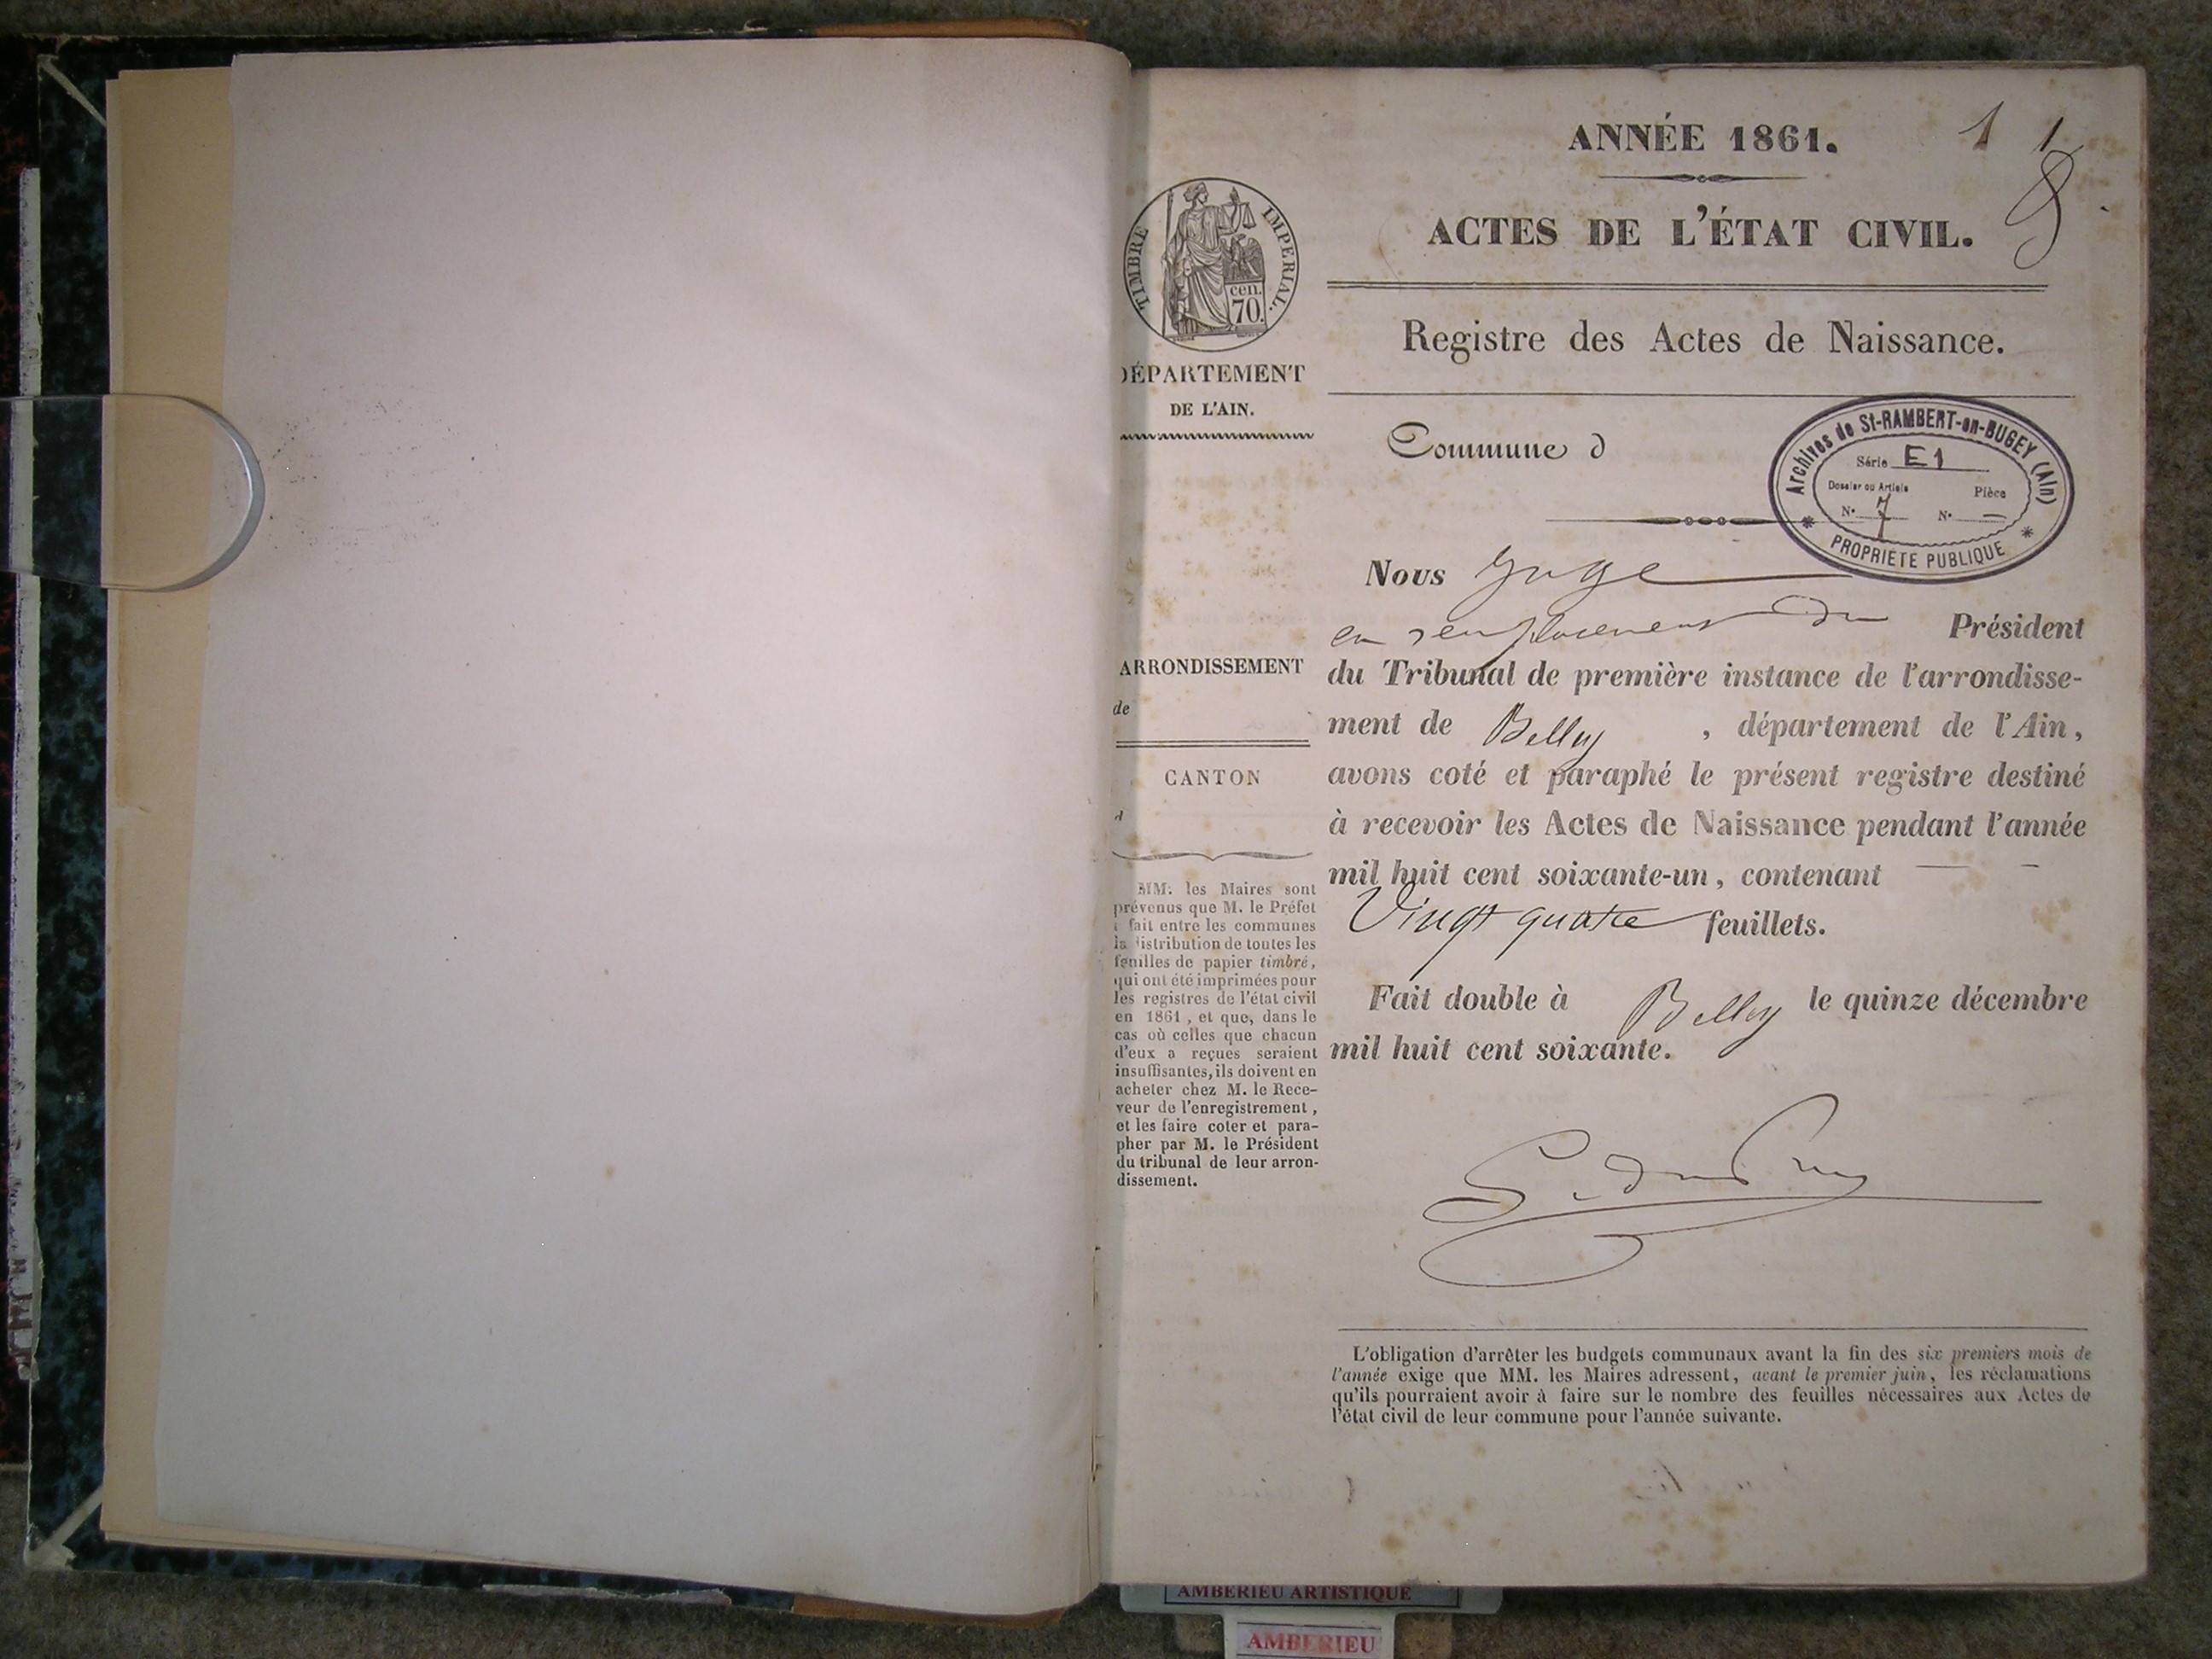 ANNÉE 1861.
1 1
ACTES DE L'ÉTAT CIVIL.
Registre des Actes de Naissance.
TIMBRE IMPERIAL.
cen.
70.
DÉPARTEMENT
DE L'AIN.
Commune d
Archives de St-RAMBERT-en-BUGEY (Ain)
Série E1
Dossier ou Article
Pièce
N° 7 N° —
PROPRIÉTÉ PUBLIQUE
Nous Juge
en remplacement du Président
du Tribunal de première instance de l'arrondisse-
ment de Belley , département de l'Ain,
avons coté et paraphé le présent registre destiné
à recevoir les Actes de Naissance pendant l'année
mil huit cent soixante-un, contenant
Vingt quatre feuillets.
Fait double à Belley le quinze décembre
mil huit cent soixante.
ARRONDISSEMENT
de
CANTON
d
MM. les Maires sont
prévenus que M. le Préfet
a fait entre les communes
la distribution de toutes les
feuilles de papier timbré,
qui ont été imprimées pour
les registres de l'état civil
en 1861, et que, dans le
cas où celles que chacun
d'eux a reçues seraient
insuffisantes, ils doivent en
acheter chez M. le Rece-
veur de l'enregistrement,
et les faire coter et para-
pher par M. le Président
du tribunal de leur arron-
dissement.
L'obligation d'arrêter les budgets communaux avant la fin des six premiers mois de
l'année exige que MM. les Maires adressent, avant le premier juin, les réclamations
qu'ils pourraient avoir à faire sur le nombre des feuilles nécessaires aux Actes de
l'état civil de leur commune pour l'année suivante.
AMBERIEU ARTISTIQUE
AMBERIEU